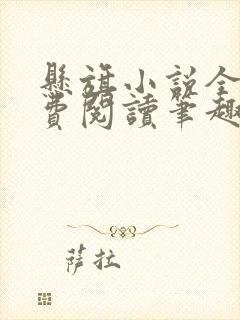 懸旗小說全
費閱讀筆趣
萨拉